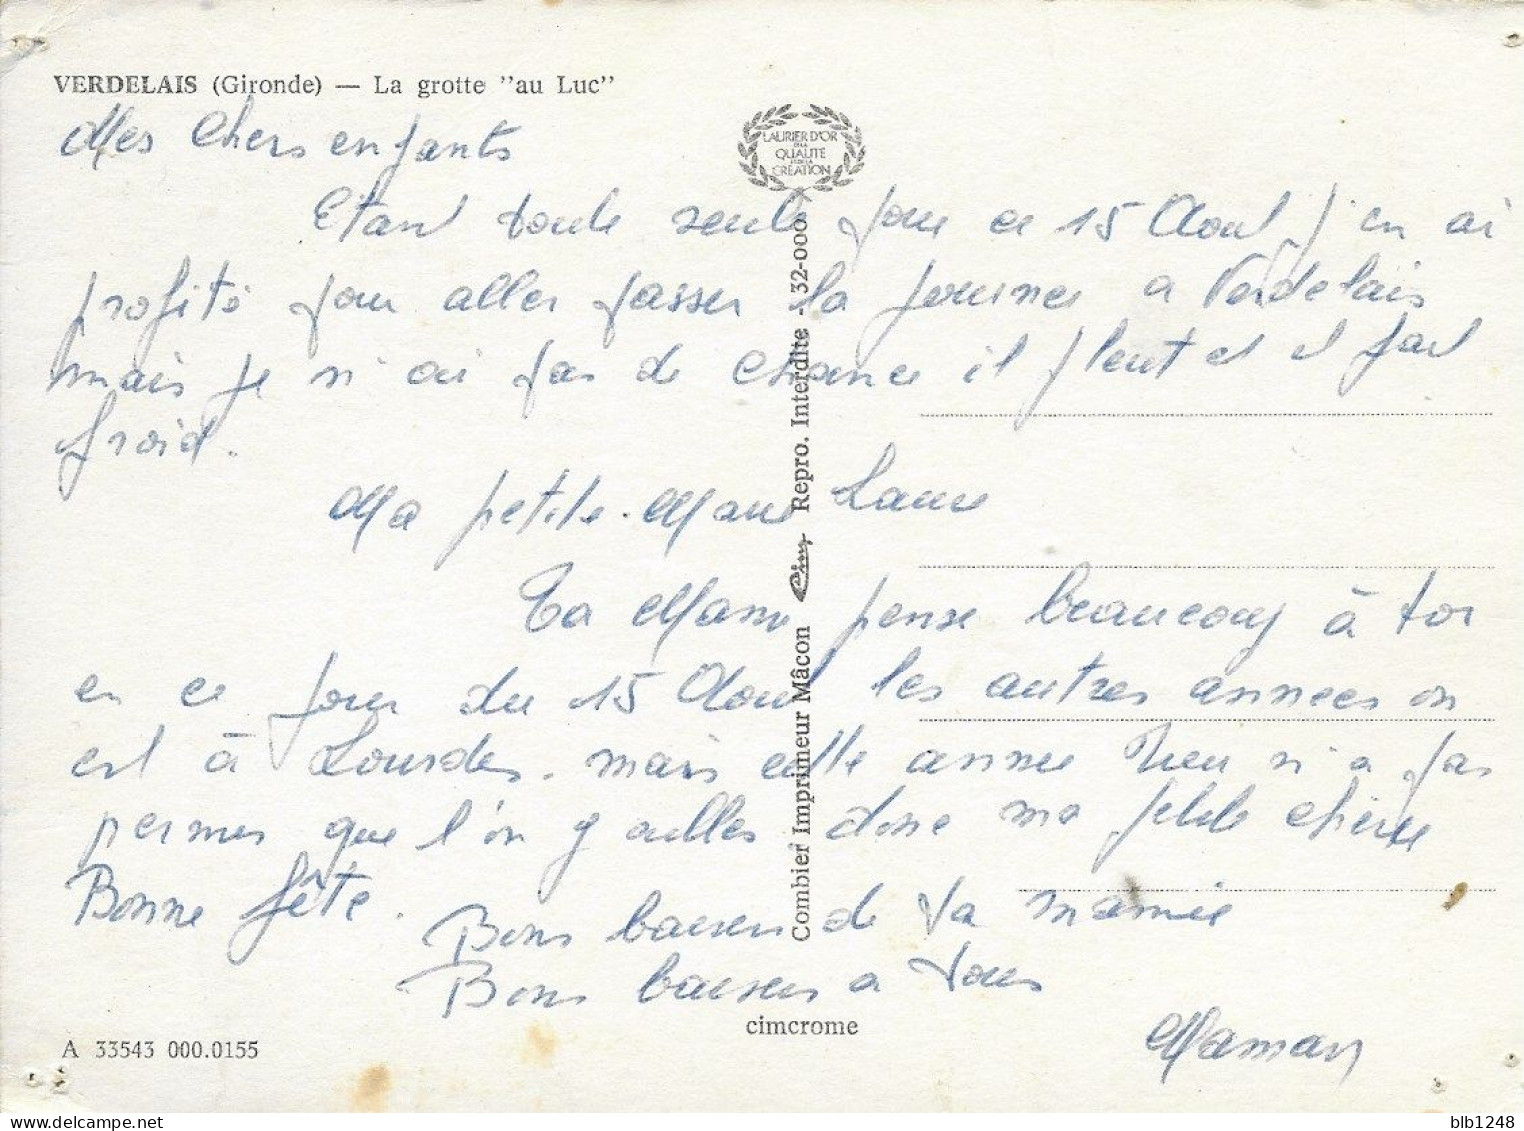 VERDELAIS (Gironde) — La grotte "au Luc"
LAURIER D'OR
DE LA
QUALITE
ET DE LA
CREATION
Mes Chers enfants
Etant toute seule pour ce 15 Aout j'en ai
profité pour aller passer la journee a Verdelais
mais je n'ai pas de chance il pleut et il fait
froid.
Ma petite Marie Laure
Ta Mamie pense beaucoup à toi
en ce jour du 15 Aout les autres annees on
est à Lourdes. mais cette annee Dieu n'a pas
permis que l'on y ailles donc ma petite cherie
Bonne fête.
Bons baisers de ta mamie
Bons baisers a tous
Maman
Combier Imprimeur Mâcon Cim Repro. Interdite - 32-000
cimcrome
A 33543 000.0155
blb1248